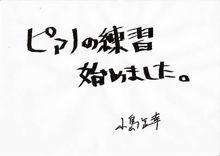 ピアノの練習
始めました。
小島正幸